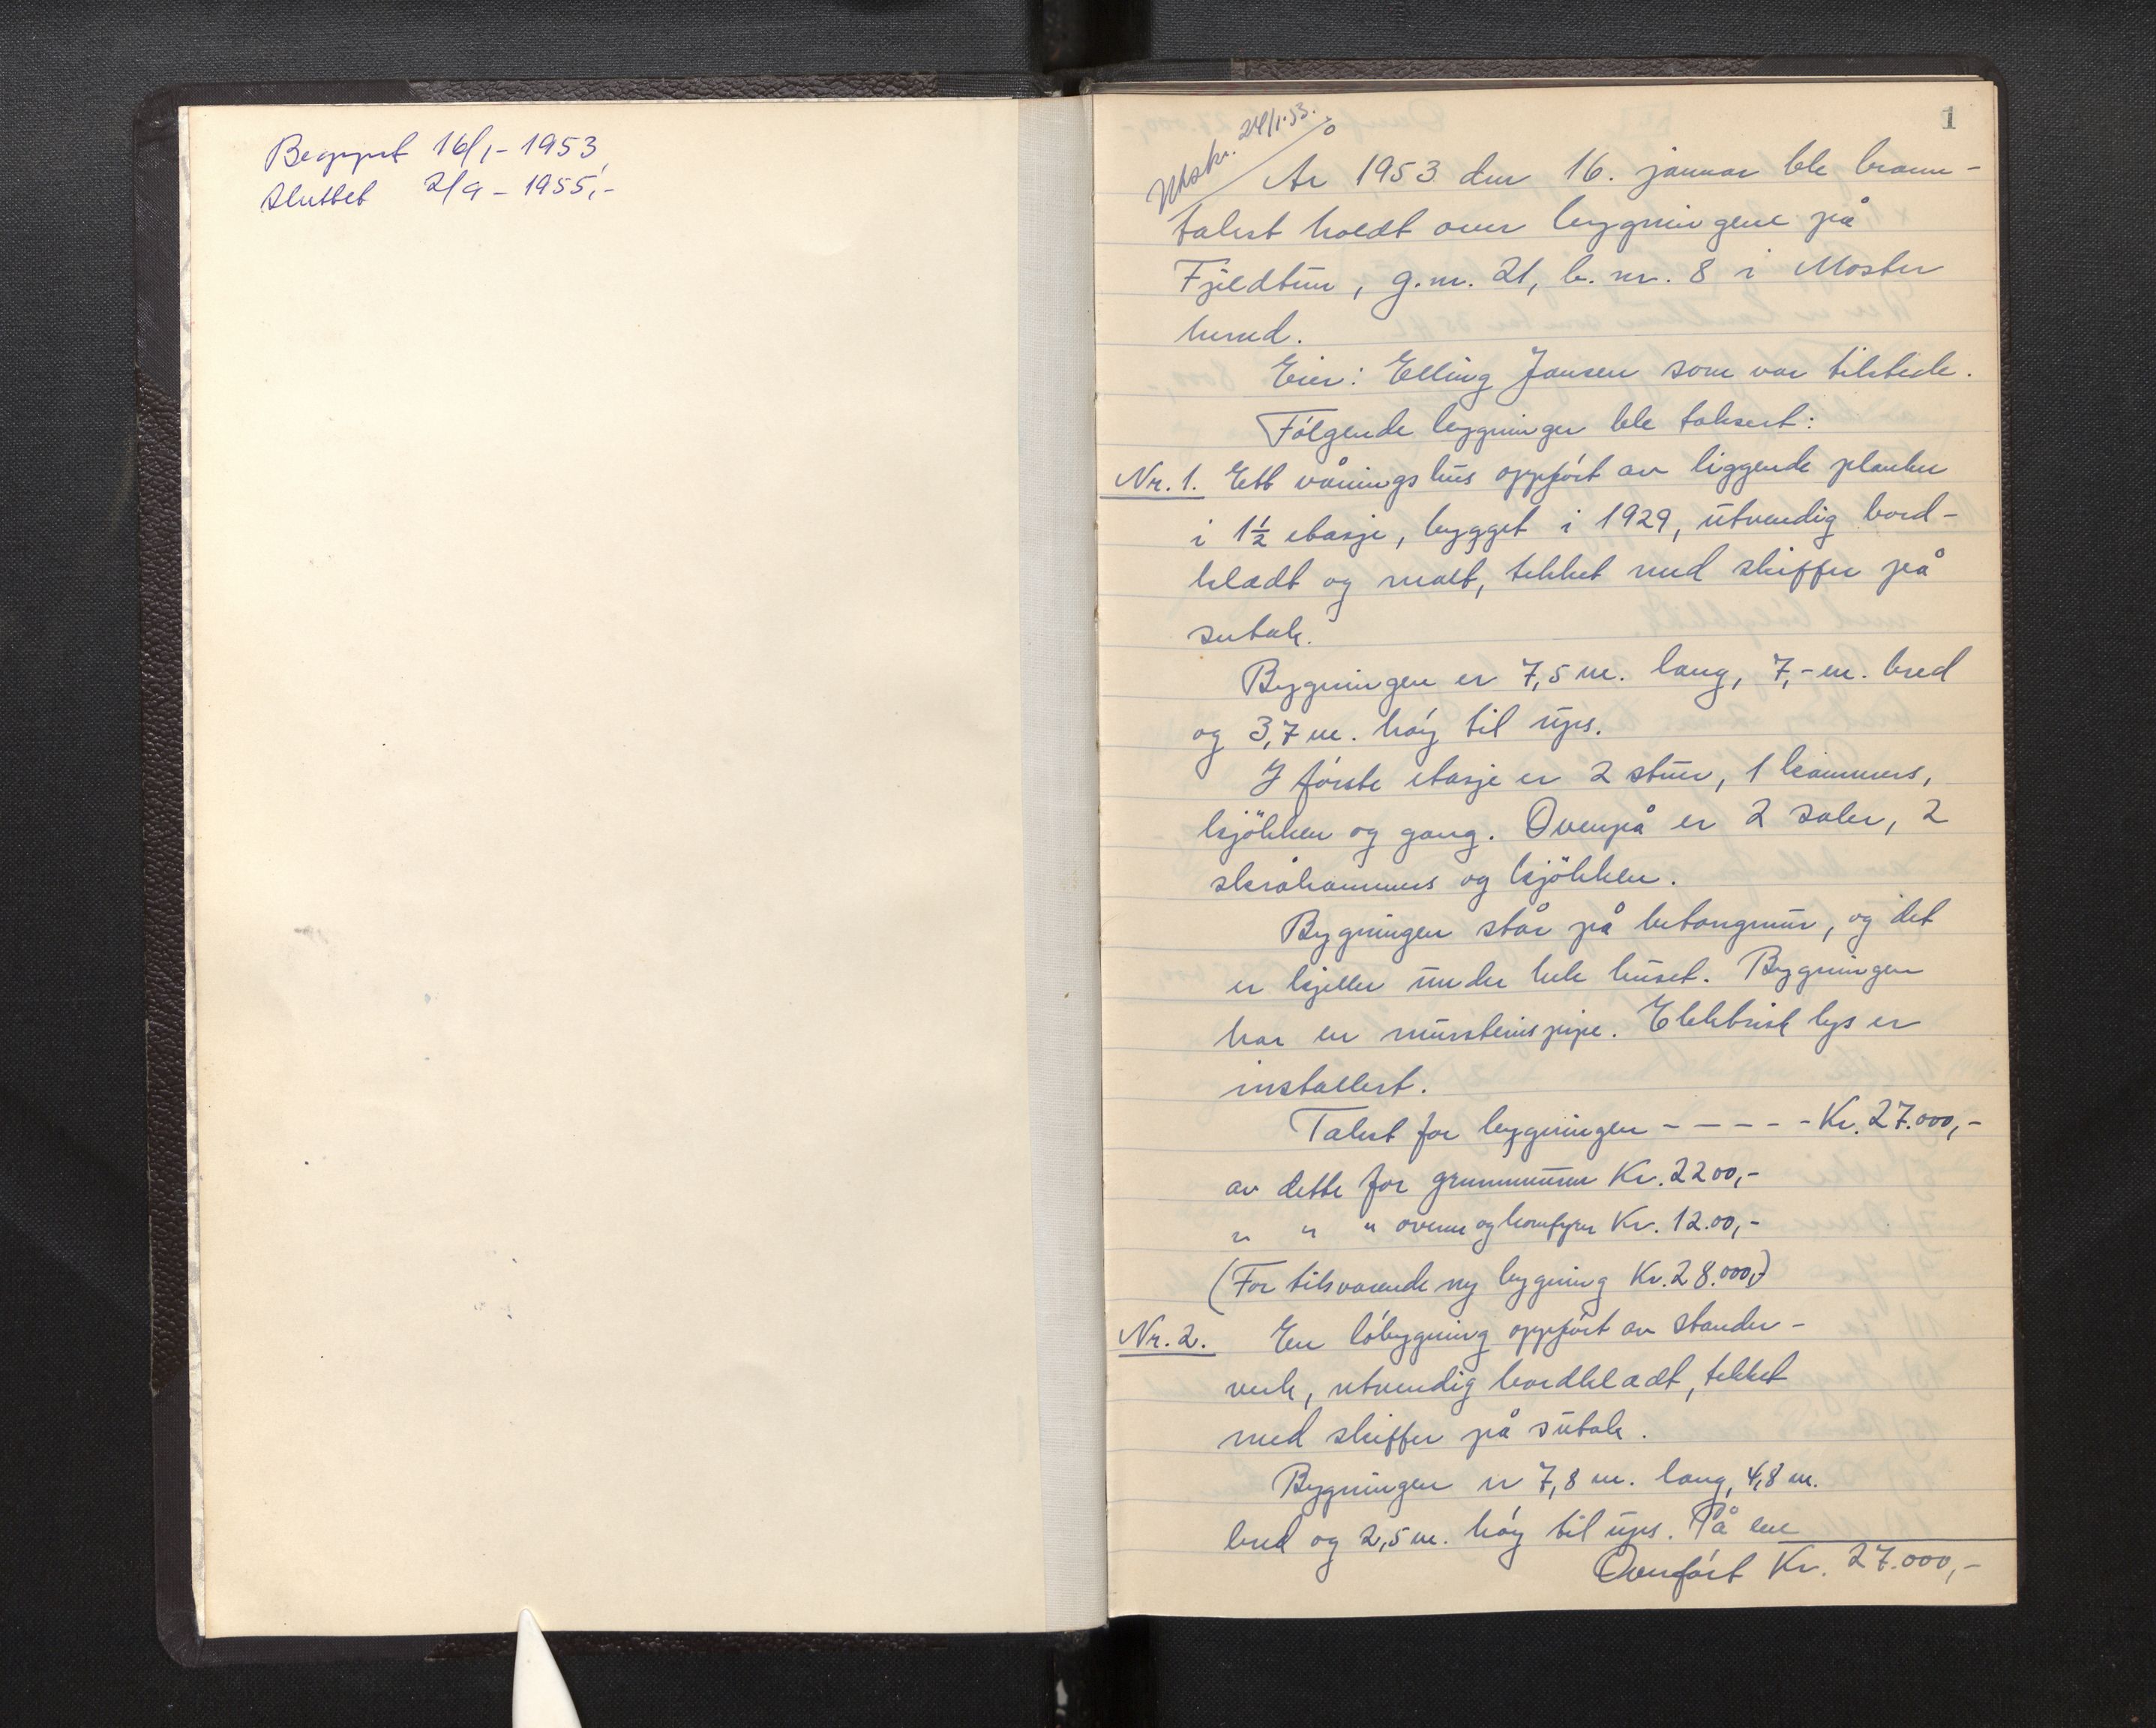 Begynt 16/1 - 1953
Sluttet 2/9 - 1955,-
1
Utskr. 24/1-53.
År 1953 den 16. januar ble brann-
takst holdt over bygningene på
Fjeldtun, g.nr. 21, b.nr. 8 i Moster
herad.
Eier: Elling Jansen som var tilstede.
Følgende bygninger ble taksert:
Nr. 1. Ett våningshus oppført av liggende planker
i 1½ etasje, bygget i 1929, utvendig bord-
kledt og malt, tekket med skiffer på
sutak.
Bygningen er 7,5 m. lang, 7,- m. bred
og 3,7 m. høy til ups.
I første etasje er 2 stuer, 1 kammers,
kjøkken og gang. Ovenpå er 2 saler, 2
skråkammers og kjøkken.
Bygningen står på betongmur, og det
er kjeller under hele huset. Bygningen
har en mursteinspipe. Elektrisk lys er
installert.
Takst for bygningen - - - - - Kr. 27.000,-
av dette for grunnmuren Kr. 2200,-
" " " ovner og komfyrer Kr. 12.00,-
(For tilsvarende ny bygning Kr. 28.000,-)
Nr. 2. En løbygning oppført av stander-
verk, utvendig bordkledt, tekket
med skiffer på sutak.
Bygningen er 7,8 m. lang, 4,8 m.
bred og 2,5 m. høy til ups. På ene
Overført Kr. 27.000,-